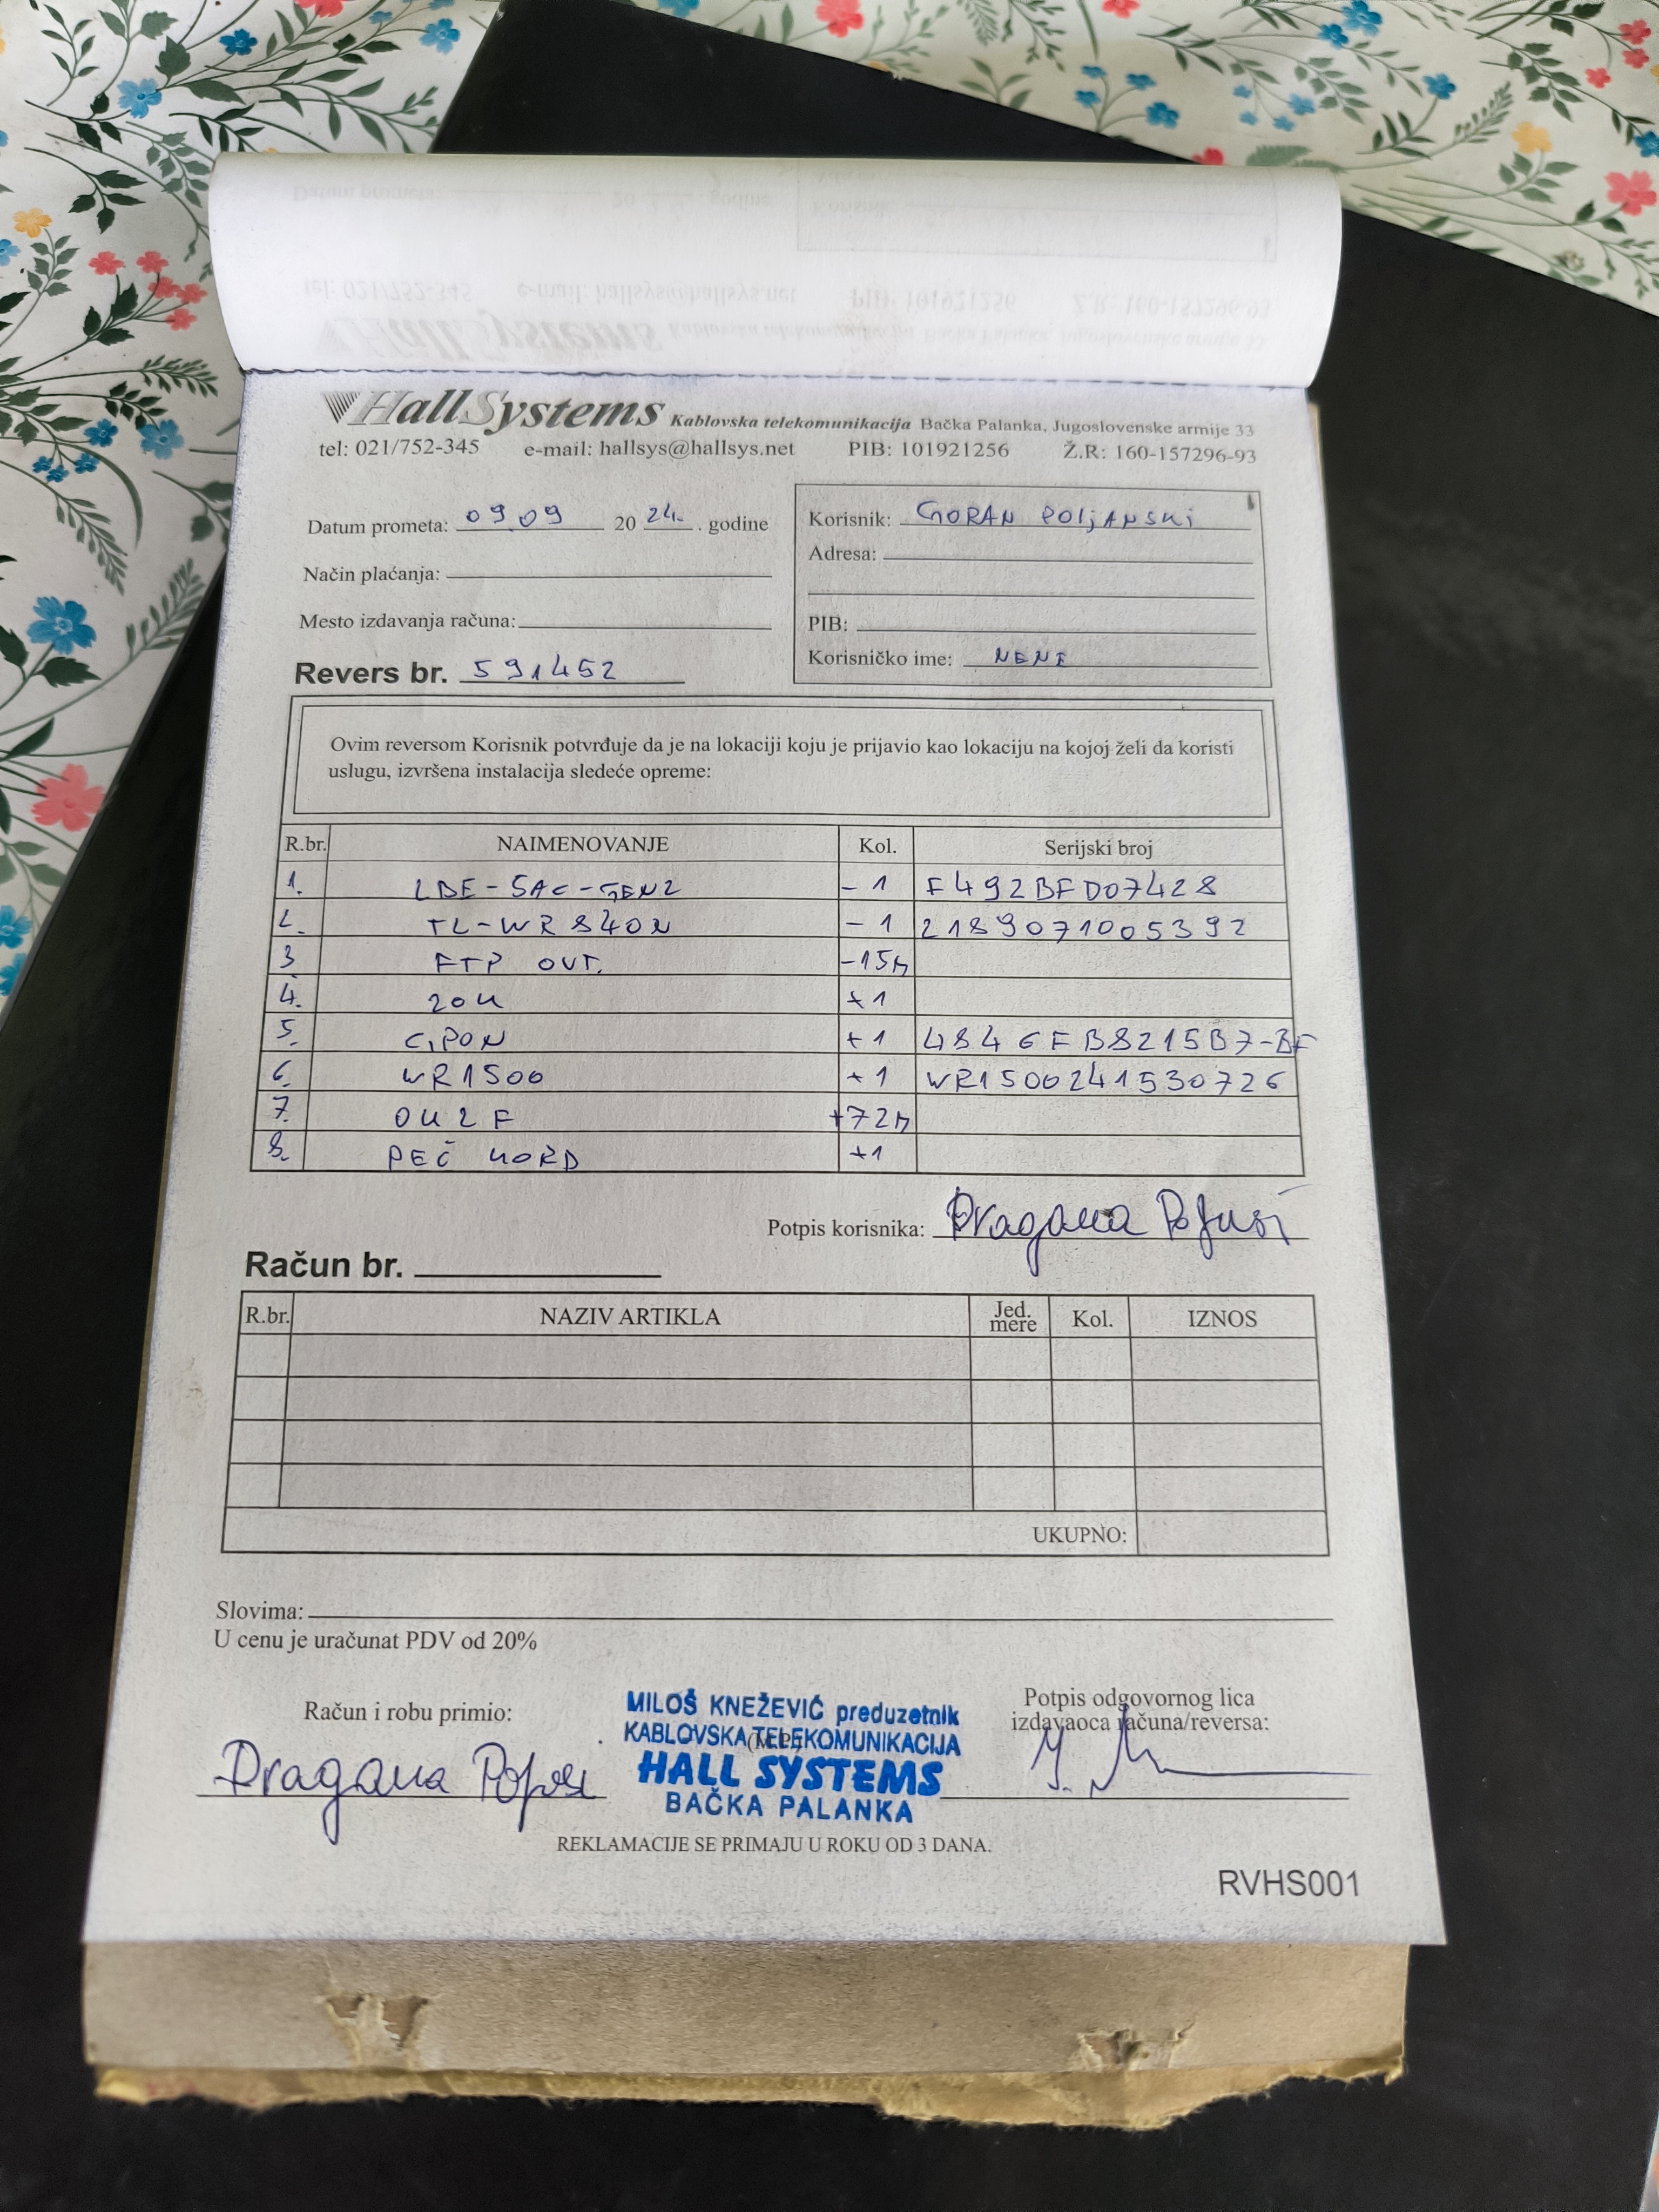 HallSystems Kablovska telekomunikacija Bačka Palanka, Jugoslovenske armije 33
tel: 021/752-345 e-mail: hallsys@hallsys.net PIB: 101921256 Ž.R: 160-157296-93
Datum prometa: 09.09 2024. . godine
Način plaćanja:
Mesto izdavanja računa:
Revers br. 591452
Korisnik: GORAN POLJANSKI
Adresa:
PIB:
Korisničko ime: NENE
Ovim reversom Korisnik potvrđuje da je na lokaciji koju je prijavio kao lokaciju na kojoj želi da koristi
uslugu, izvršena instalacija sledeće opreme:
R.br. NAIMENOVANJE Kol. Serijski broj
1. LBE-5AC-GEN2 -1 F492BFD07428
2. TL-WR840N -1 2189071005392
3 FTP OUT. -15M
4. ZOK +1
5. GPON +1 4846FB8215B7-BF
6. WR1500 +1 WR1500241530726
7. OK2F +72M
8. PEČ KORD +1
Potpis korisnika: Dragana
Račun br.
R.br. NAZIV ARTIKLA Jed. mere Kol. IZNOS
UKUPNO:
Slovima:
U cenu je uračunat PDV od 20%
Račun i robu primio:
Dragana
MILOŠ KNEŽEVIĆ preduzetnik
KABLOVSKA TELEKOMUNIKACIJA
(M.P.)
HALL SYSTEMS
BAČKA PALANKA
Potpis odgovornog lica
izdavaoca računa/reversa:
REKLAMACIJE SE PRIMAJU U ROKU OD 3 DANA.
RVHS001